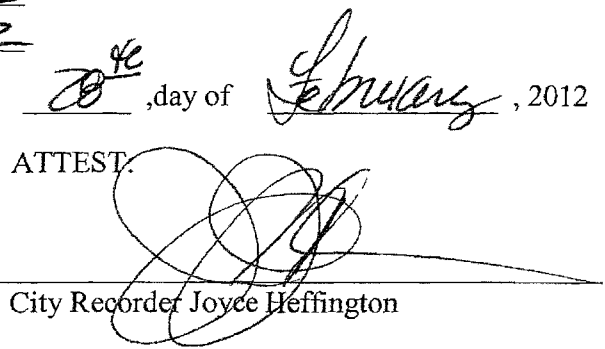 28th ,day of February , 2012
ATTEST:
City Recorder Joyce Heffington